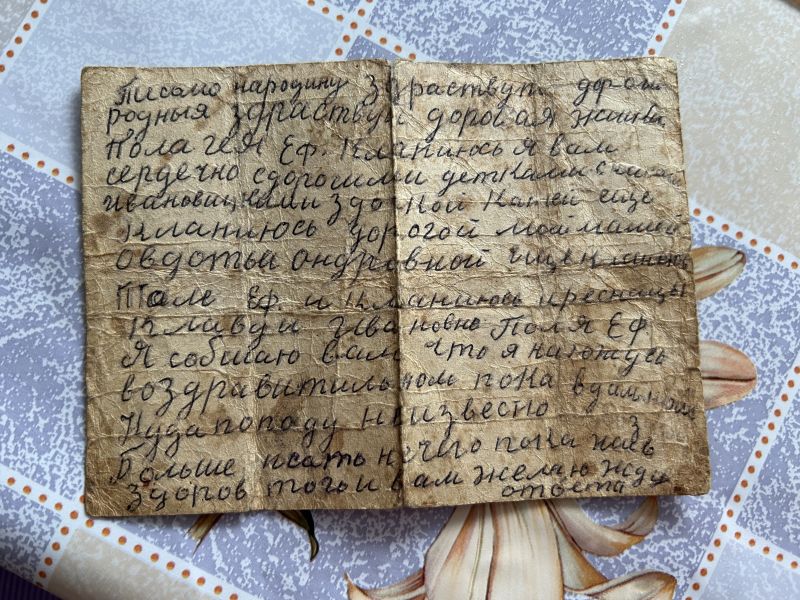 Писмо народину Здраствуте дороги
родныя здраствуй дорогая
Пола гея Еф. Кланиюсь я вам
сердечно сдорогими детками с
ивановиц дочкой Катей еще
кланиюсь дорогой моймамы
овдотьи ондровной еще кланеюсь
Поле Еф и кланиюсь
клавди Ивановно Поля Еф
Я собшаю вам что я нахожусь
воздравительном пока
Куда попаду неизвесно
Больше писать нечего пока жив
здоров того и вам желаю жду
ответа